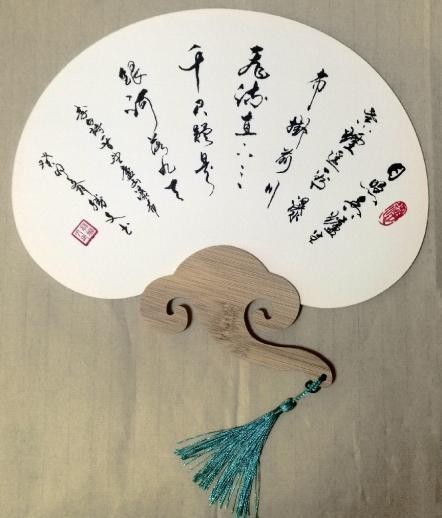 日照香爐生
紫煙遥看瀑
布掛前川
飛流直下三
千尺疑是
銀河落九天
李白詩一首望廬山瀑布
癸卯
文書